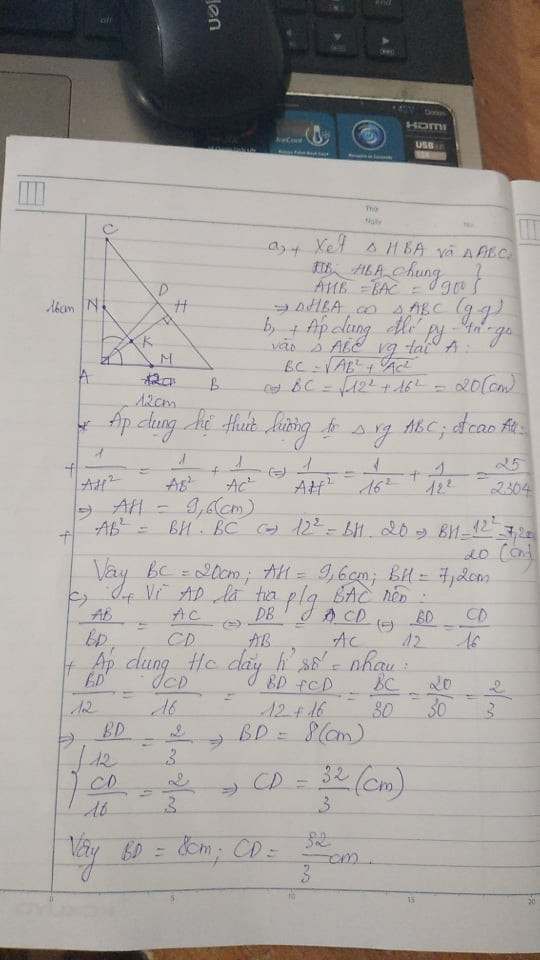 alt
len
end
Dadao
HDMI
USB
Thứ
Ngày
No
a, + Xét △ HBA và △ABC:
HBA chung }
AHB = BAC = 90° }
⇒ △HBA ∽ △ABC (g.g)
b, + Áp dụng đlí py-ta-go
vào △ ABC vg tại A:
BC = √AB² + AC²
⇔ BC = √12² + 16² = 20(cm)
C
D
H
16cm
N
K
A
M
B
12cm
* Áp dụng hệ thức lượng tr △ vg ABC; đ cao AH:
+ 1/AH² = 1/AB² + 1/AC² ⇔ 1/AH² = 1/16² + 1/12² = 25/2304
⇒ AH = 9,6(cm)
+ AB² = BH . BC ⇔ 12² = BH . 20 ⇒ BH = 12²/20 = 7,2cm
(cm)
Vậy BC = 20cm; AH = 9,6cm; BH = 7,2cm
c, + Vì AD là tia p/g BAC nên:
AB/BD = AC/CD ⇔ DB/AB = CD/AC ⇔ BD/12 = CD/16
+ Áp dụng t/c dãy tỉ số = nhau:
BD/12 = CD/16 = BD + CD/12 + 16 = BC/30 = 20/30 = 2/3
⇒ { BD/12 = 2/3 ⇒ BD = 8(cm)
{ CD/16 = 2/3 ⇒ CD = 32/3 (cm)
Vậy BD = 8cm; CD = 32/3 cm.
0 5 10 15 20